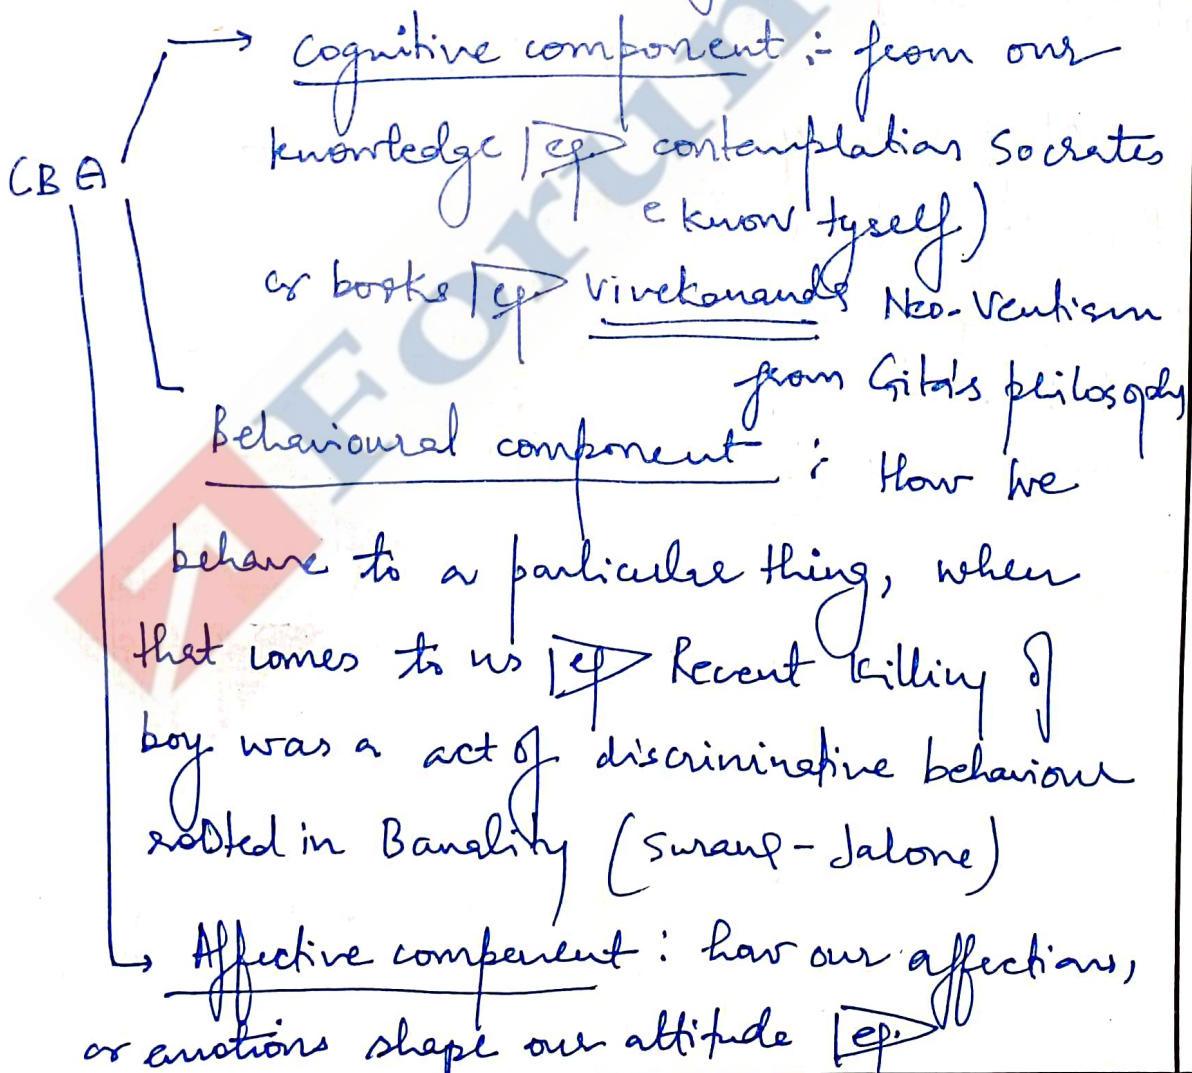 → Cognitive component :- from our
knowledge eg. contemplation Socrates
CBA
(know tyself)
or books eg. Vivekananda's Neo-Ventism
from Gita's philosophy
Behavioural component : How we
behave to a particular thing, when
that comes to us eg. Recent killing of
boy was a act of discriminative behaviour
rooted in Banality (Jalore)
→ Affective component : how our affections,
or emotions shape our attitude eg.
Forum